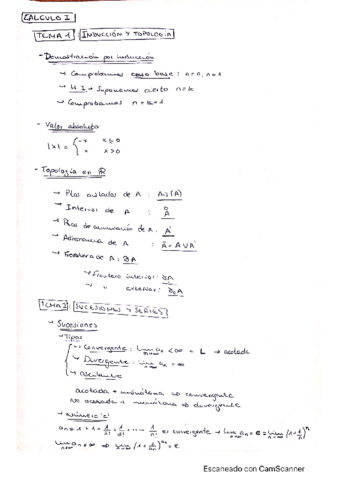 CALCULO I
TEMA 1 INDUCCIÓN Y TOPOLOGIA
- Demostración por inducción
→ Comprobamos caso base: n=0, n=1
→ H.I. → Suponemos cierto n=k
→ Comprobamos n=k+1
- Valor absoluto
|x| = { -x x≤0
x x>0
- Topología en ℝ
→ Ptos aislados de A : Ais(A)
→ Interior de A : Å
→ Ptos de acumulación de A: A'
→ Adherencia de A : Ā = A ∪ A'
→ Frontera de A: ∂A
→ Frontera interior: ∂iA
→ " exterior: ∂eA
TEMA 2 SUCESIONES Y SERIES
→ Sucesiones
→ Tipos
Convergente: lim an < ∞ = L → acotada
n→∞
Divergente: lim an = ∞
n→∞
Oscilante
acotada + monótona ⇒ convergente
No acotada + monótona ⇒ divergente
→ Número 'e'
an = 1 + 1 + 1/2! + 1/3! + ... + 1/n! es convergente → lim an = e = lim (1+1/n)^n
lim an = ∞ ⇒ lim (1+1/an)^an = e
Escaneado con CamScanner